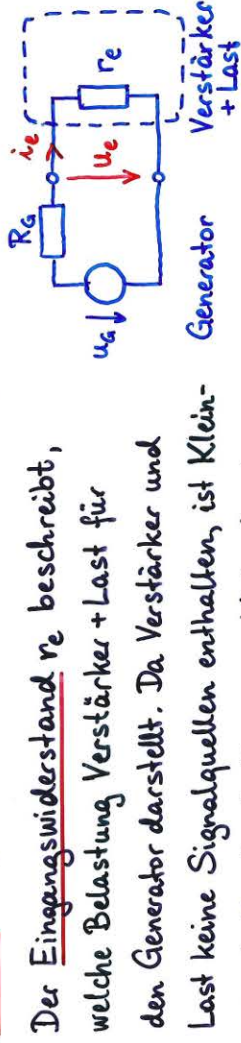 Der Eingangswiderstand re beschreibt,
welche Belastung Verstärker + Last für
den Generator darstellt. Da Verstärker und
Last keine Signalquellen enthalten, ist Klein-
RG
ie
uG
ue
re
Generator
Verstärker
+ Last